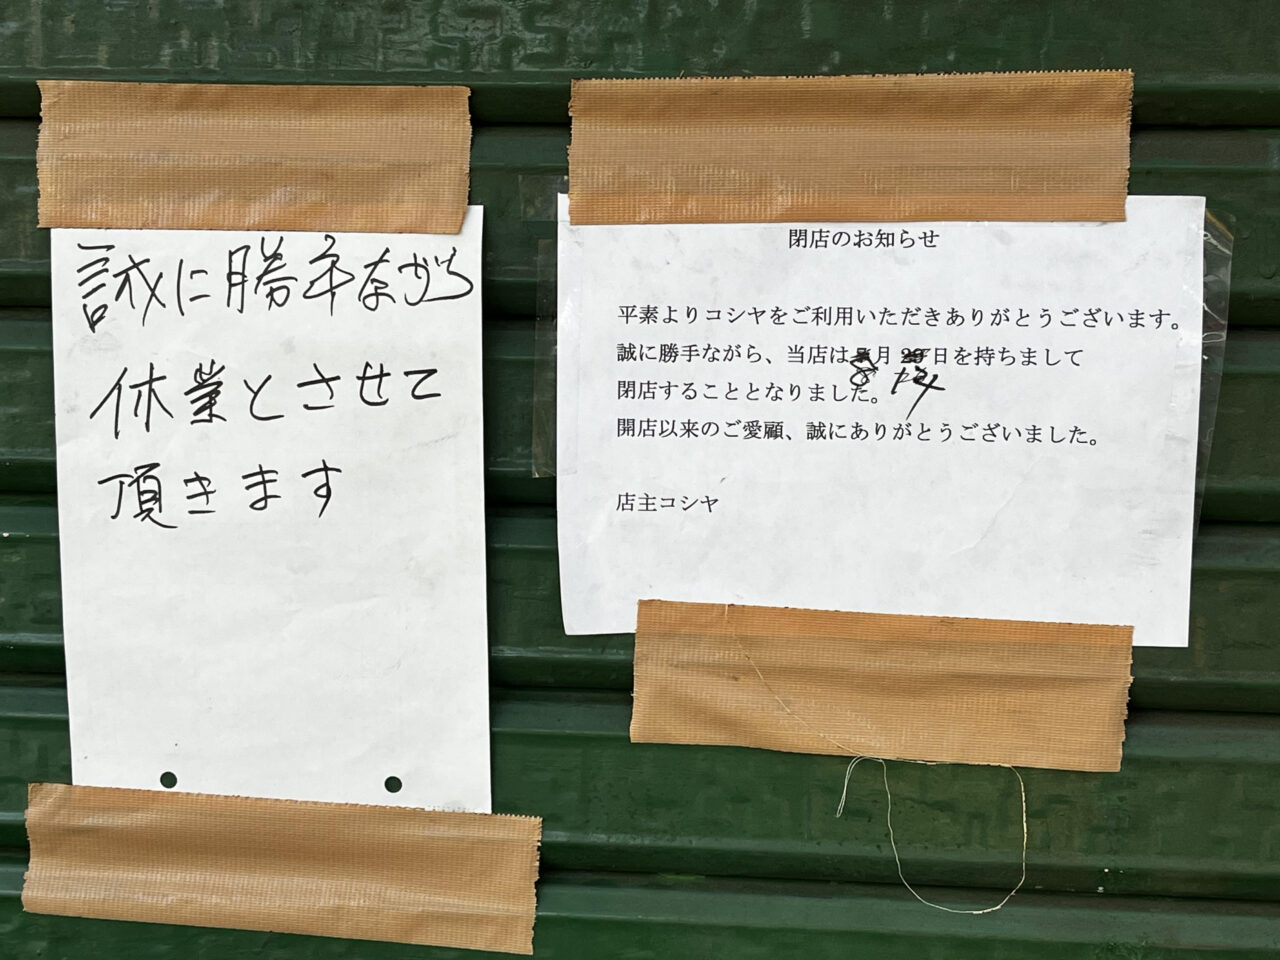 誠に勝手ながら
休業とさせて
頂きます
閉店のお知らせ
平素よりコシヤをご利用いただきありがとうございます。
誠に勝手ながら、当店は8月日を持ちまして
閉店することとなりました。
開店以来のご愛顧、誠にありがとうございました。
店主コシヤ